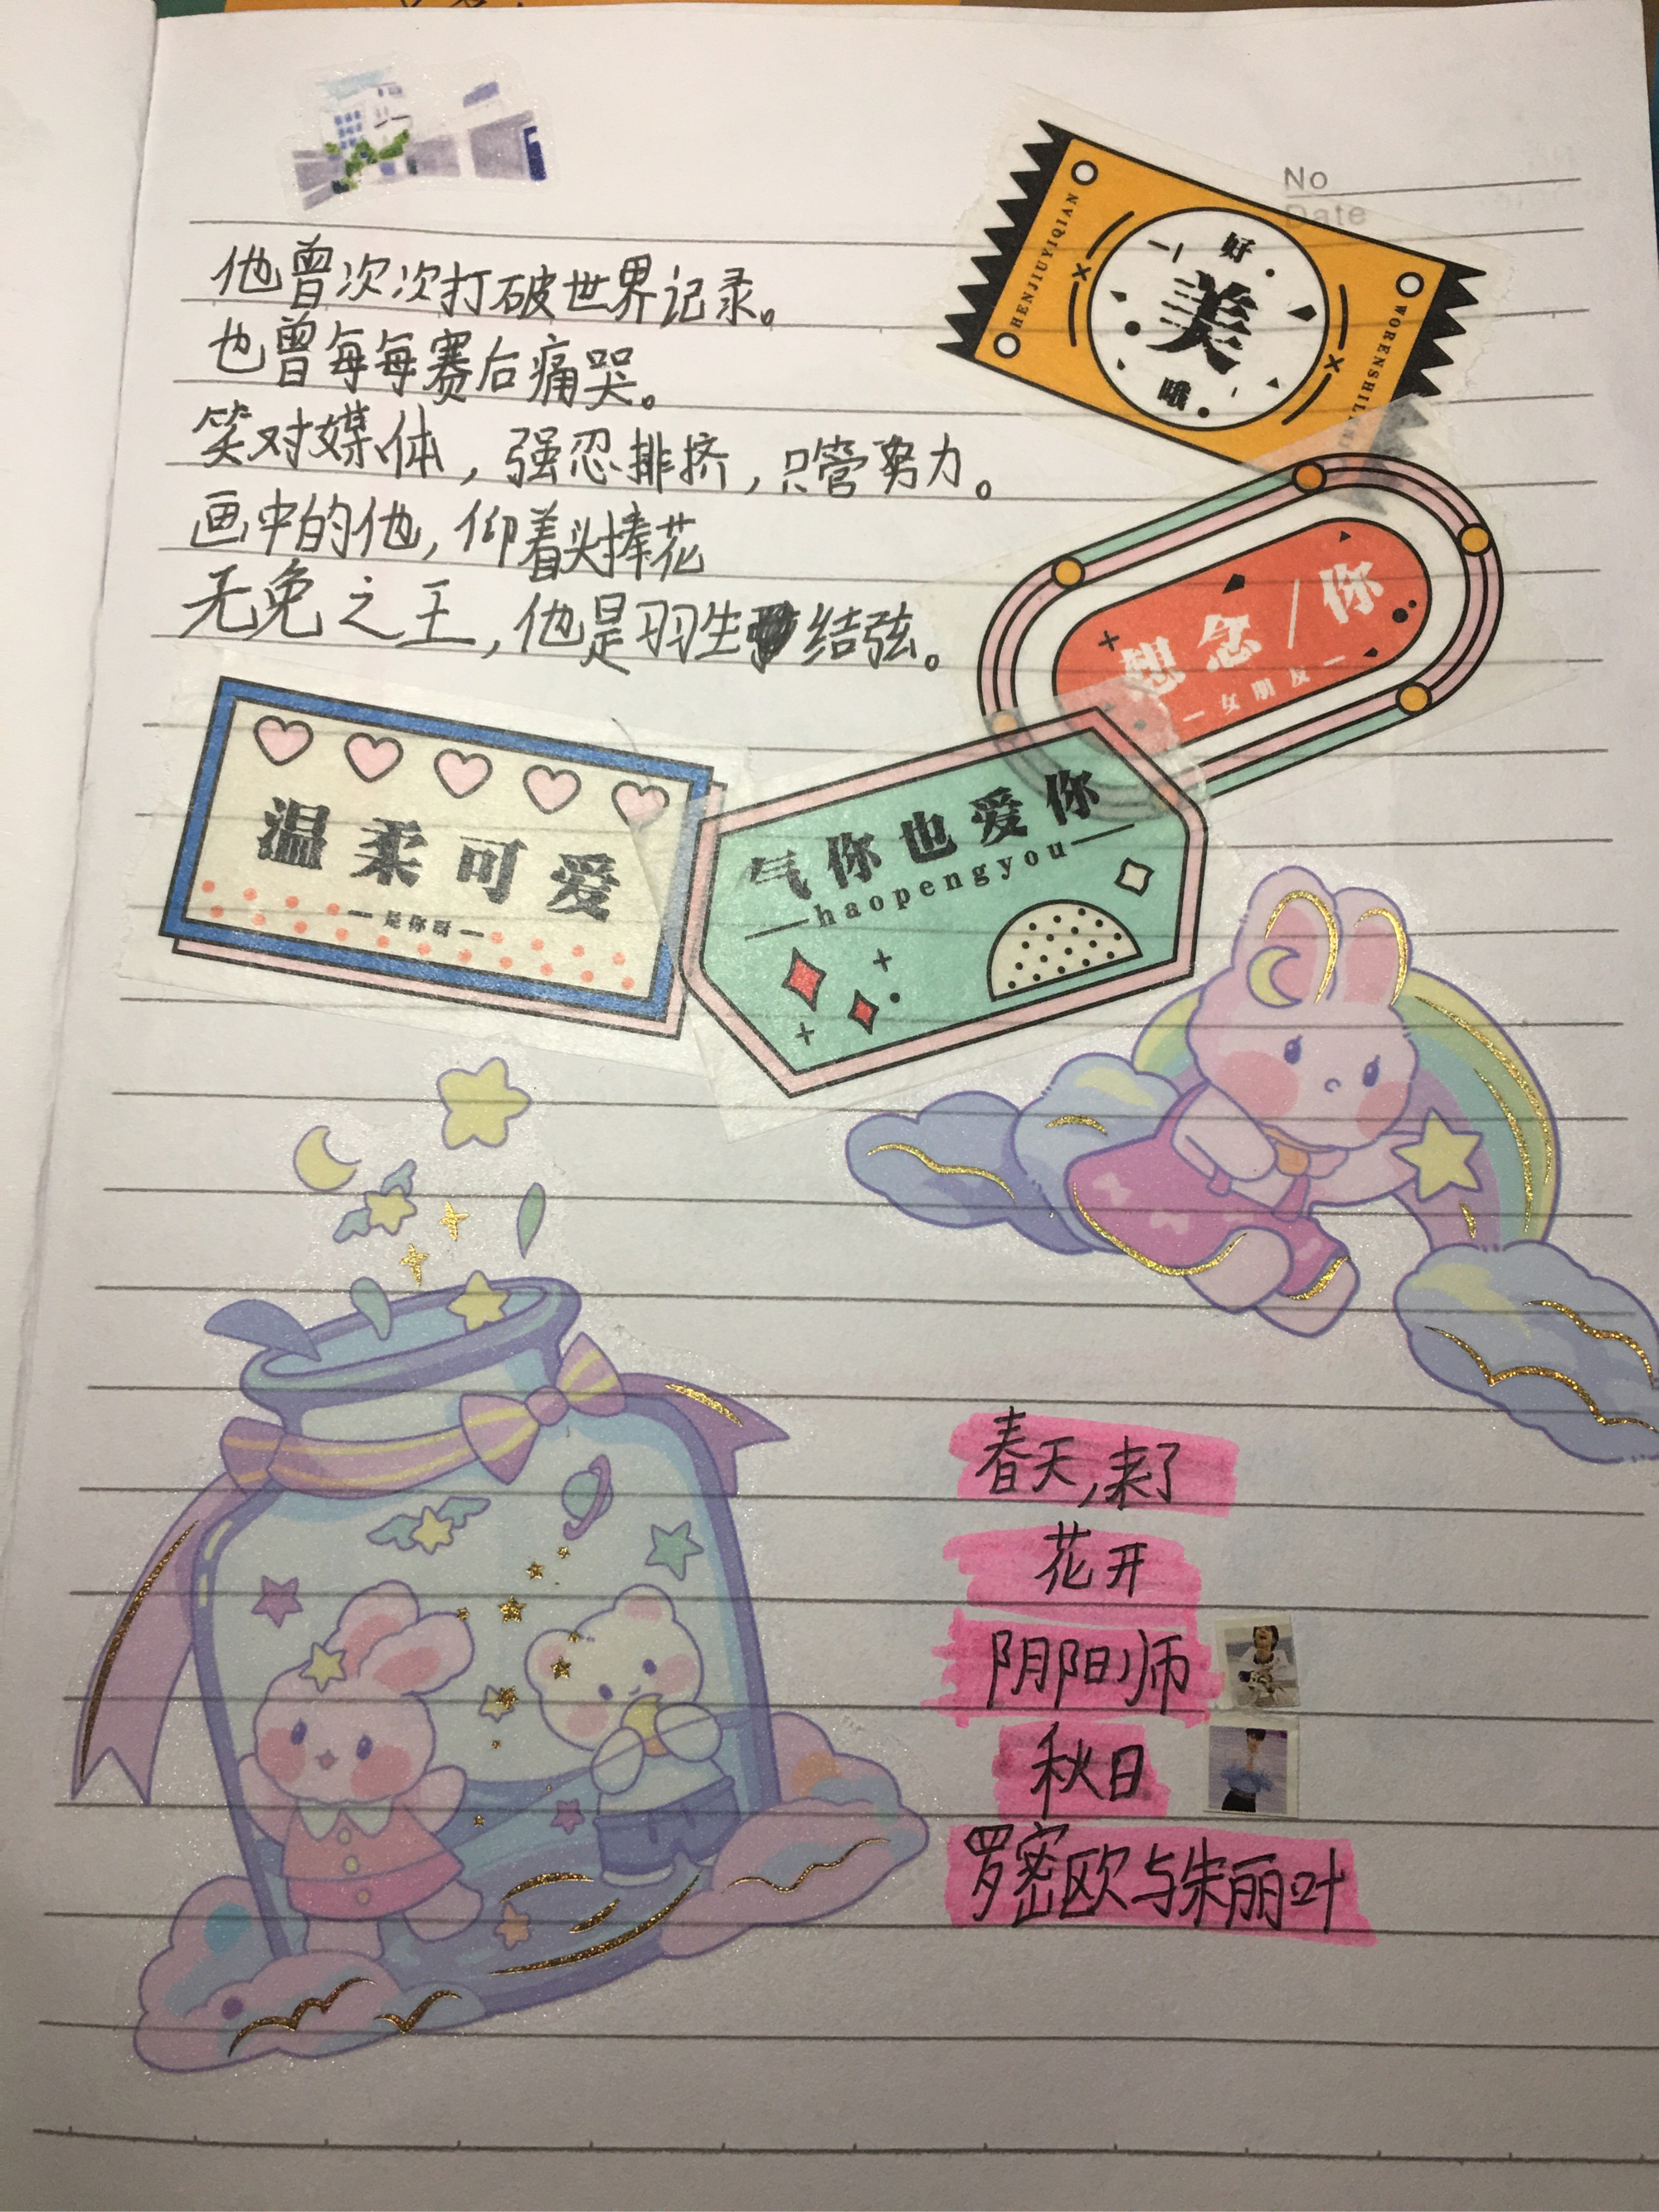 No
Date
他曾次次打破世界记录。
也曾每每赛后痛哭。
笑对媒体，强忍排挤，只管努力。
画中的他，仰着头捧花
无免之王，他是羽生结弦。
好
美
哦
HENJIUYIQIAN
WORENSHILE
想念/你
一女朋友一
温柔可爱
一是你呀一
气你也爱你
haopengyou
春天,来了
花开
阴阳师
秋日
罗密欧与朱丽叶